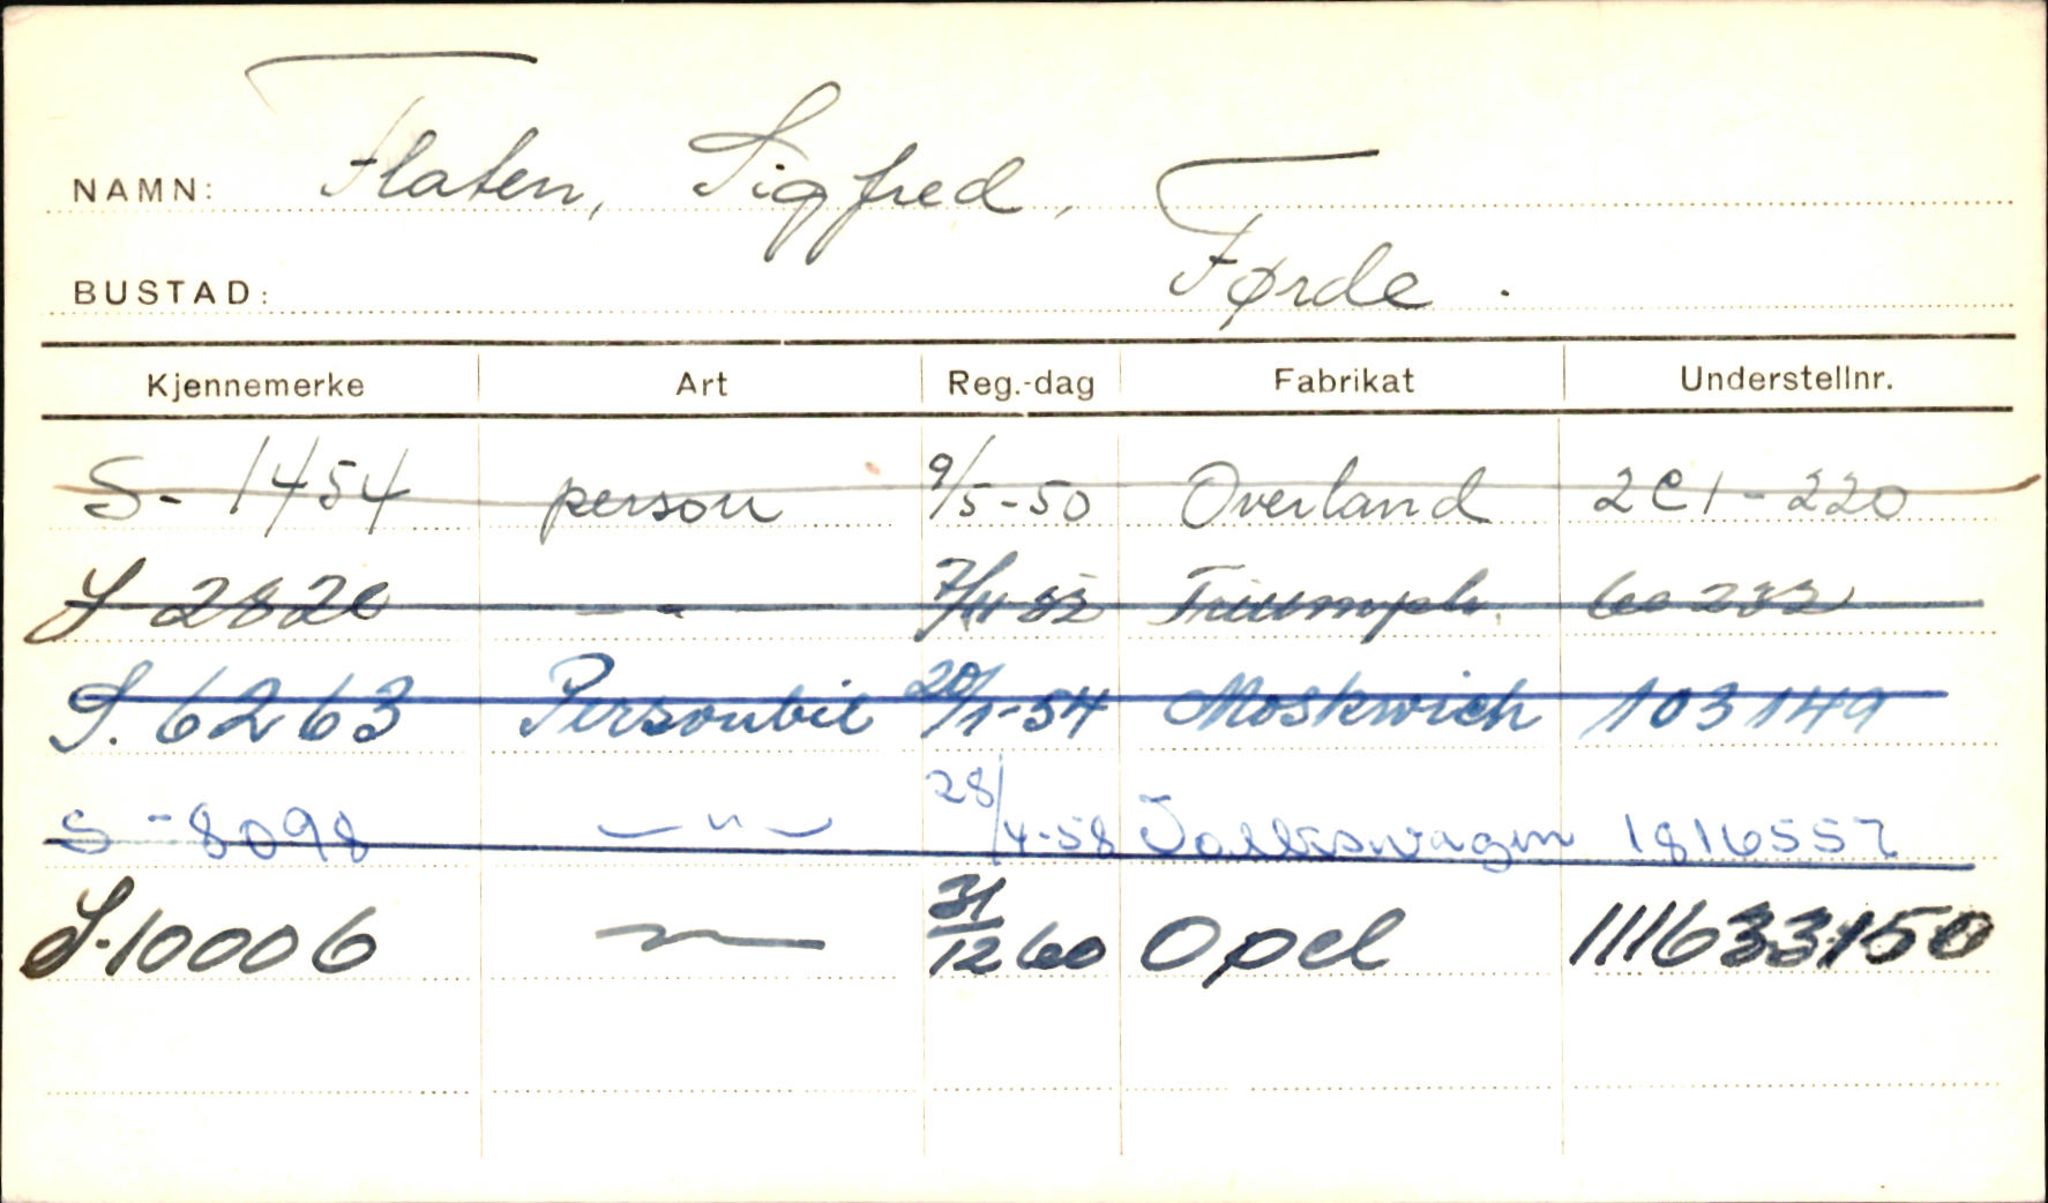 NAMN: Flaten, Sigfred,
BUSTAD: Førde.
Kjennemerke Art Reg.-dag Fabrikat Understellnr.
S-1454 person 9/5-50 Overland 2C1-220
S-2820 -"- 7/11-52 Triumph. 60232
S.6263 Personbil 20/1-54 Moskwich 103149
S-8098 -"- 28/4-58 Volkswagen 1816557
S-10006 31/12 60 Opel 111633150